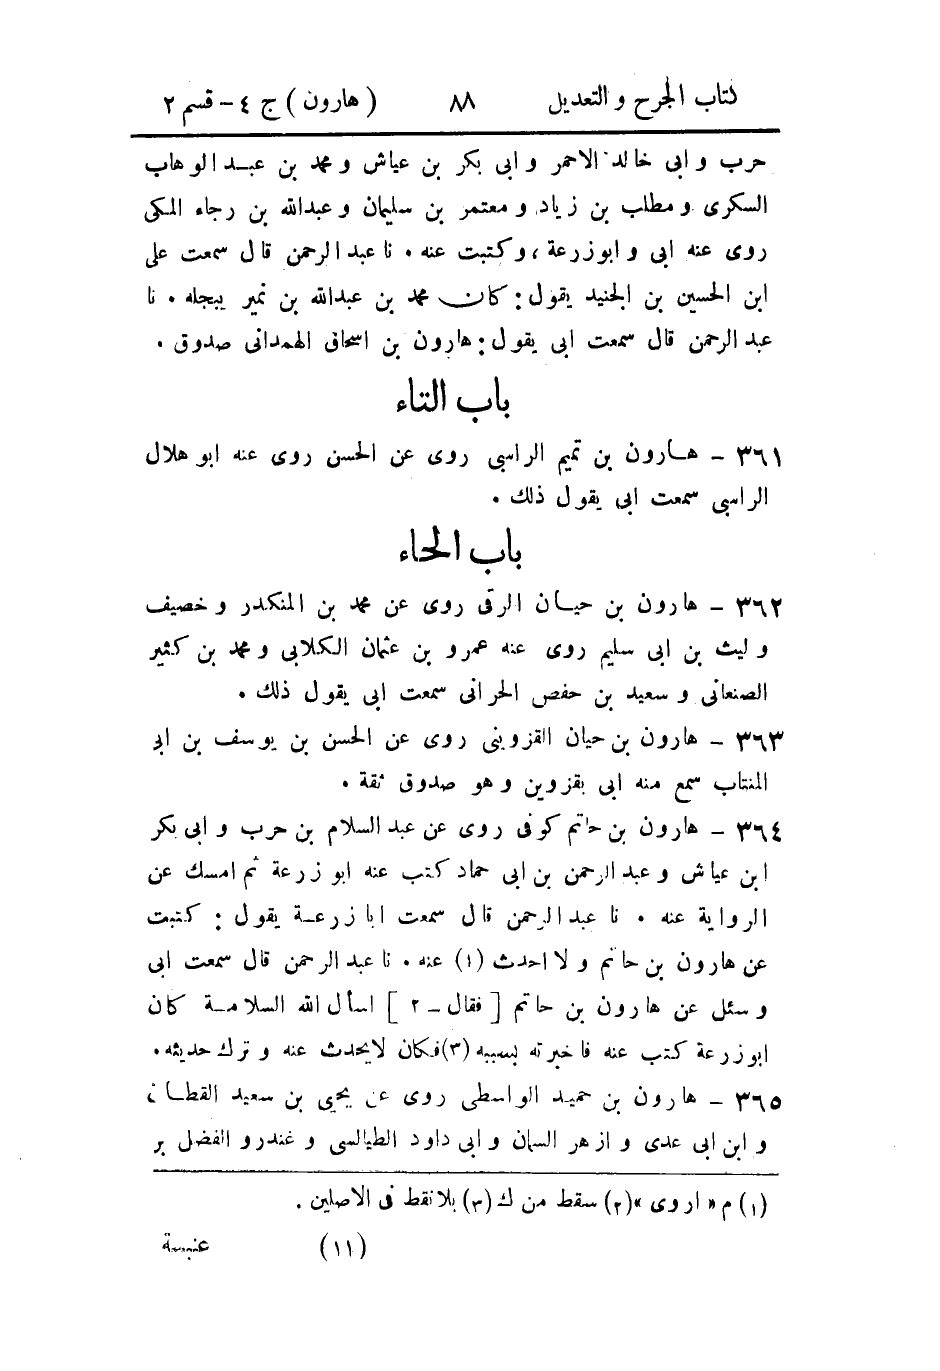 كتاب الجرح والتعديل ٨٨ ( هارون ) ج ٤ - قسم ٢
حرب و ابى خالد الاحمر و ابى بكر بن عياش و محمد بن عبد الوهاب
السكرى و مطلب بن زياد و معتمر بن سليمان و عبدالله بن رجاء المكى
روى عنه ابى و ابوزرعة ، وكتبت عنه . نا عبد الرحمن قال سمعت على
ابن الحسين بن الجنيد يقول : كان محمد بن عبدالله بن نمير يبجله . نا
عبد الرحمن قال سمعت ابى يقول : هارون بن اسحاق الهمدانى صدوق .
باب التاء
٣٦١ - هارون بن تميم الراسبى روى عن الحسن روى عنه ابو هلال
الراسبى سمعت ابى يقول ذلك .
باب الحاء
٣٦٢ - هارون بن حيان الرقى روى عن محمد بن المنكدر و خصيف
و ليث بن ابى سليم روى عنه عمرو بن عثمان الكلابى و محمد بن كثير
الصنعانى و سعيد بن حفص الحرانى سمعت ابى يقول ذلك .
٣٦٣ - هارون بن حيان القزوينى روى عن الحسن بن يوسف بن ابى
المنتاب سمع منه ابى بقزوين و هو صدوق ثقة .
٣٦٤ - هارون بن حاتم كوفى روى عن عبد السلام بن حرب و ابى بكر
ابن عياش و عبد الرحمن بن ابى حماد كتب عنه ابو زرعة ثم امسك عن
الرواية عنه . نا عبد الرحمن قال سمعت ابا زرعة يقول : كتبت
عن هارون بن حاتم و لا احدث (١) عنه . نا عبد الرحمن قال سمعت ابى
و سئل عن هارون بن حاتم [ فقال - ٢ ] اسأل الله السلامة كان
ابوزرعة كتب عنه فاخبرته بسببه (٣) فكان لايحدث عنه و ترك حديثه .
٣٦٥ - هارون بن حميد الواسطى روى عن يحيى بن سعيد القطان
و ابن ابى عدى و ازهر السمان و ابى داود الطيالسى و غندرو الفضل بن
(١) م « اروى » (٢) سقط من ك (٣) بلا نقط فى الاصلين .
(١١) عنبسة